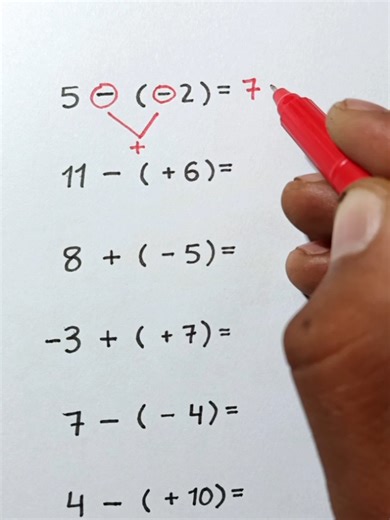 5 - (-2) = 7
+
11 - (+6) =
8 + (-5) =
-3 + (+7) =
7 - (-4) =
4 - (+10) =